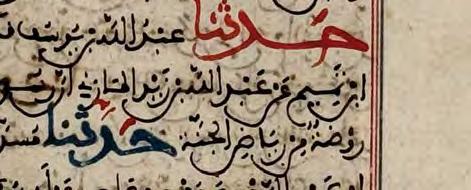 حدثنا عبد الله بن يوسف
ابن تميم عن عبد الله بن زيد المازني ان رسو
روضة من رياض الجنة حدثنا مسدد